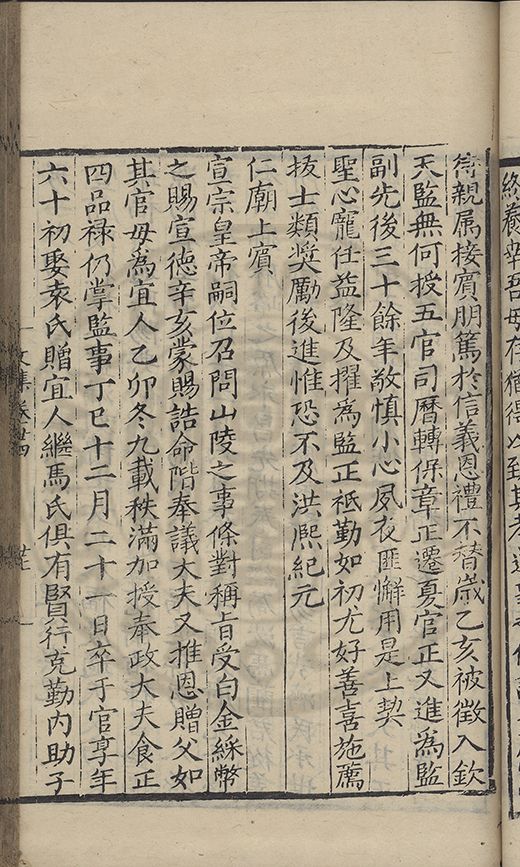 待親屬接賓朋篤於信義恩禮不替歲乙亥被徵入欽
天監無何授五官司曆轉保章正遷夏官正又進為監
副先後三十餘年敬慎小心夙夜匪懈用是上契
聖心寵任益隆及擢為監正祗勤如初尤好善喜施薦
拔士類奬勵後進惟恐不及洪熙紀元
仁廟上賓
宣宗皇帝嗣位召問山陵之事條對稱旨受白金綵幣
之賜宣德辛亥蒙賜誥命階奉議大夫又推恩贈父如
其官母為宜人乙卯冬九載秩滿加授奉政大夫食正
四品祿仍掌監事丁巳十二月二十一日卒于官享年
六十初娶袁氏贈宜人繼馬氏俱有賢行克勤内助子
文集卷